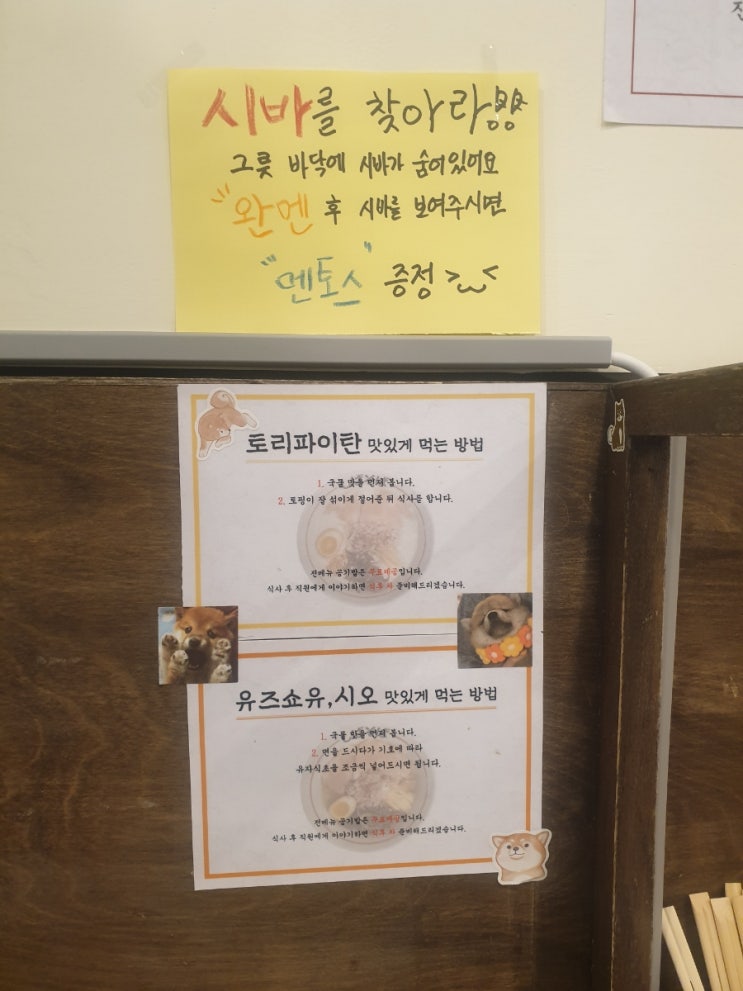 시바를 찾아라
그릇 바닥에 시바가 숨어있어요
"완멘" 후 시바를 보여주시면
"멘토스" 증정 >ω<
토리파이탄 맛있게 먹는 방법
1. 국물 맛을 먼저 봅니다.
2. 토핑이 잘 섞이게 저어준 뒤 식사를 합니다.
전메뉴 공기밥은 무료제공입니다.
식사 후 직원에게 이야기하면 식후 차 준비해드리겠습니다.
유즈쇼유,시오 맛있게 먹는 방법
1. 국물 맛을 먼저 봅니다.
2. 면을 드시다가 기호에 따라
유자식초를 조금씩 넣어드시면 됩니다.
전메뉴 공기밥은 무료제공입니다.
식사 후 직원에게 이야기하면 식후 차 준비해드리겠습니다.